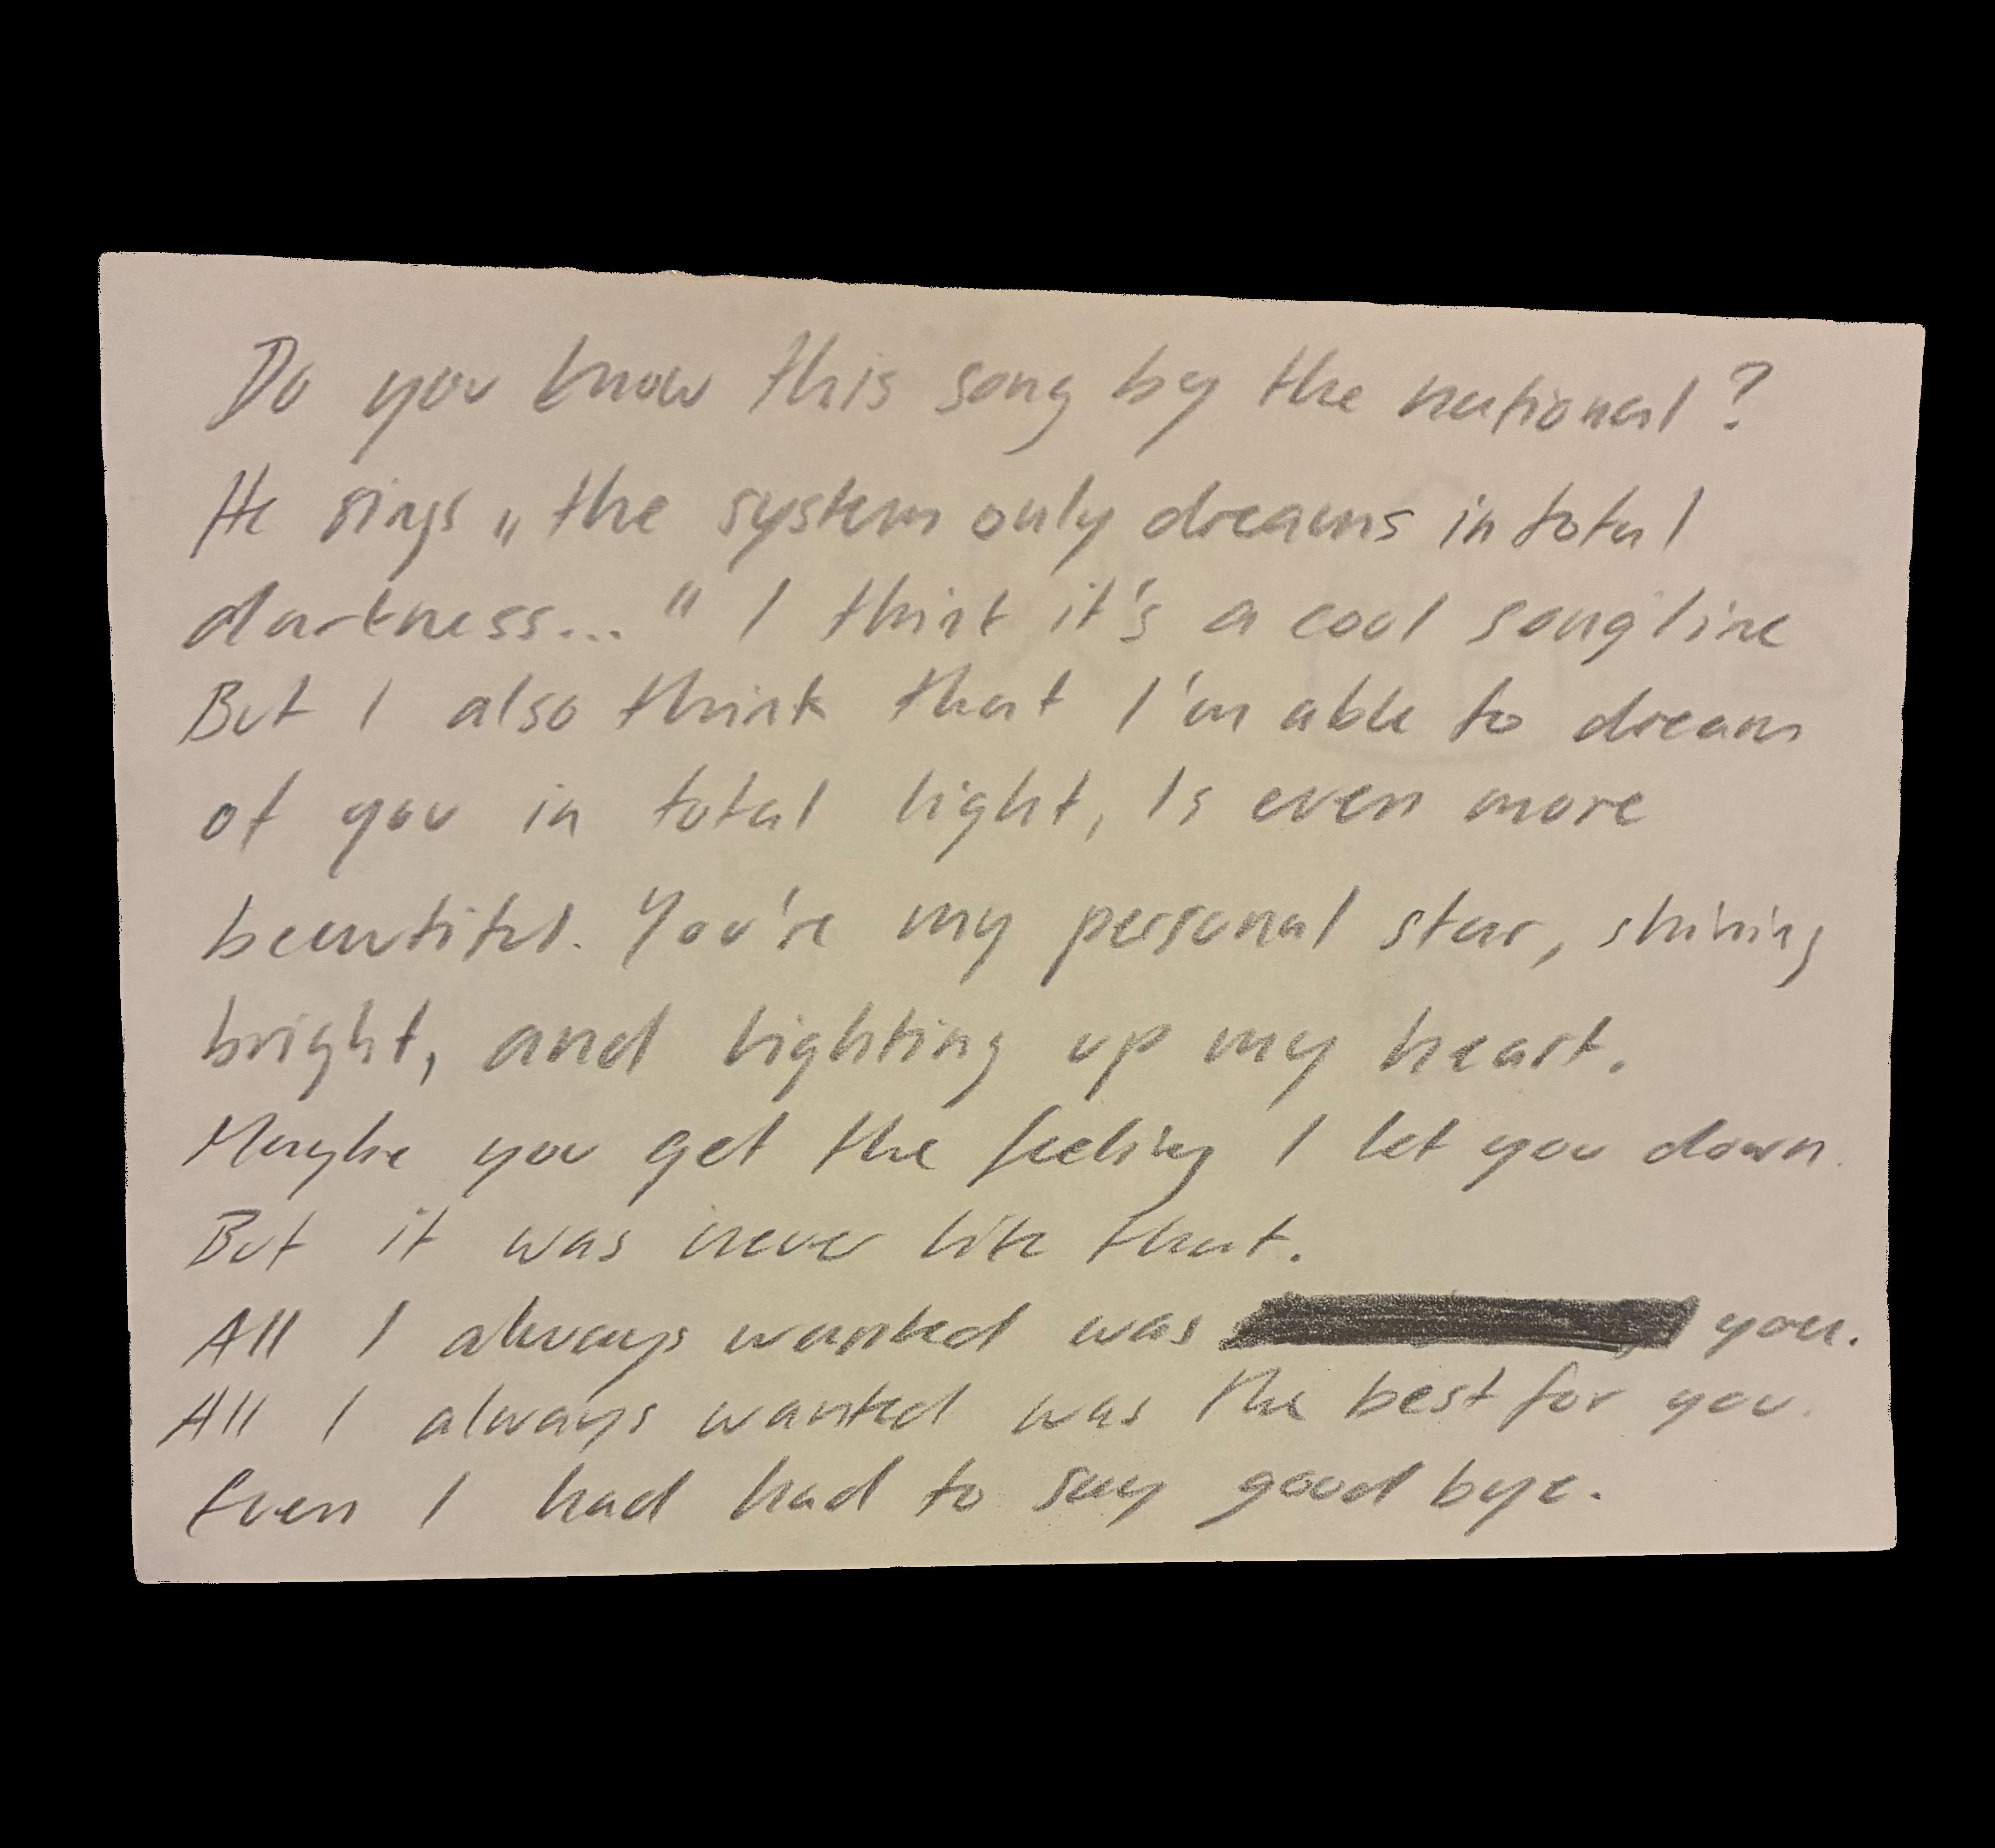 Do you know this song by the national?
He sings „the system only dreams in total
darkness..." I think it's a cool songline
But I also think that I'm able to dream
of you in total light, Is even more
beautiful. You're my personal star, shining
bright, and lighting up my heart.
Maybe you get the feeling I let you down.
But it was never like that.
All I always wanted was you.
All I always wanted was the best for you.
Even I had had to say good bye.